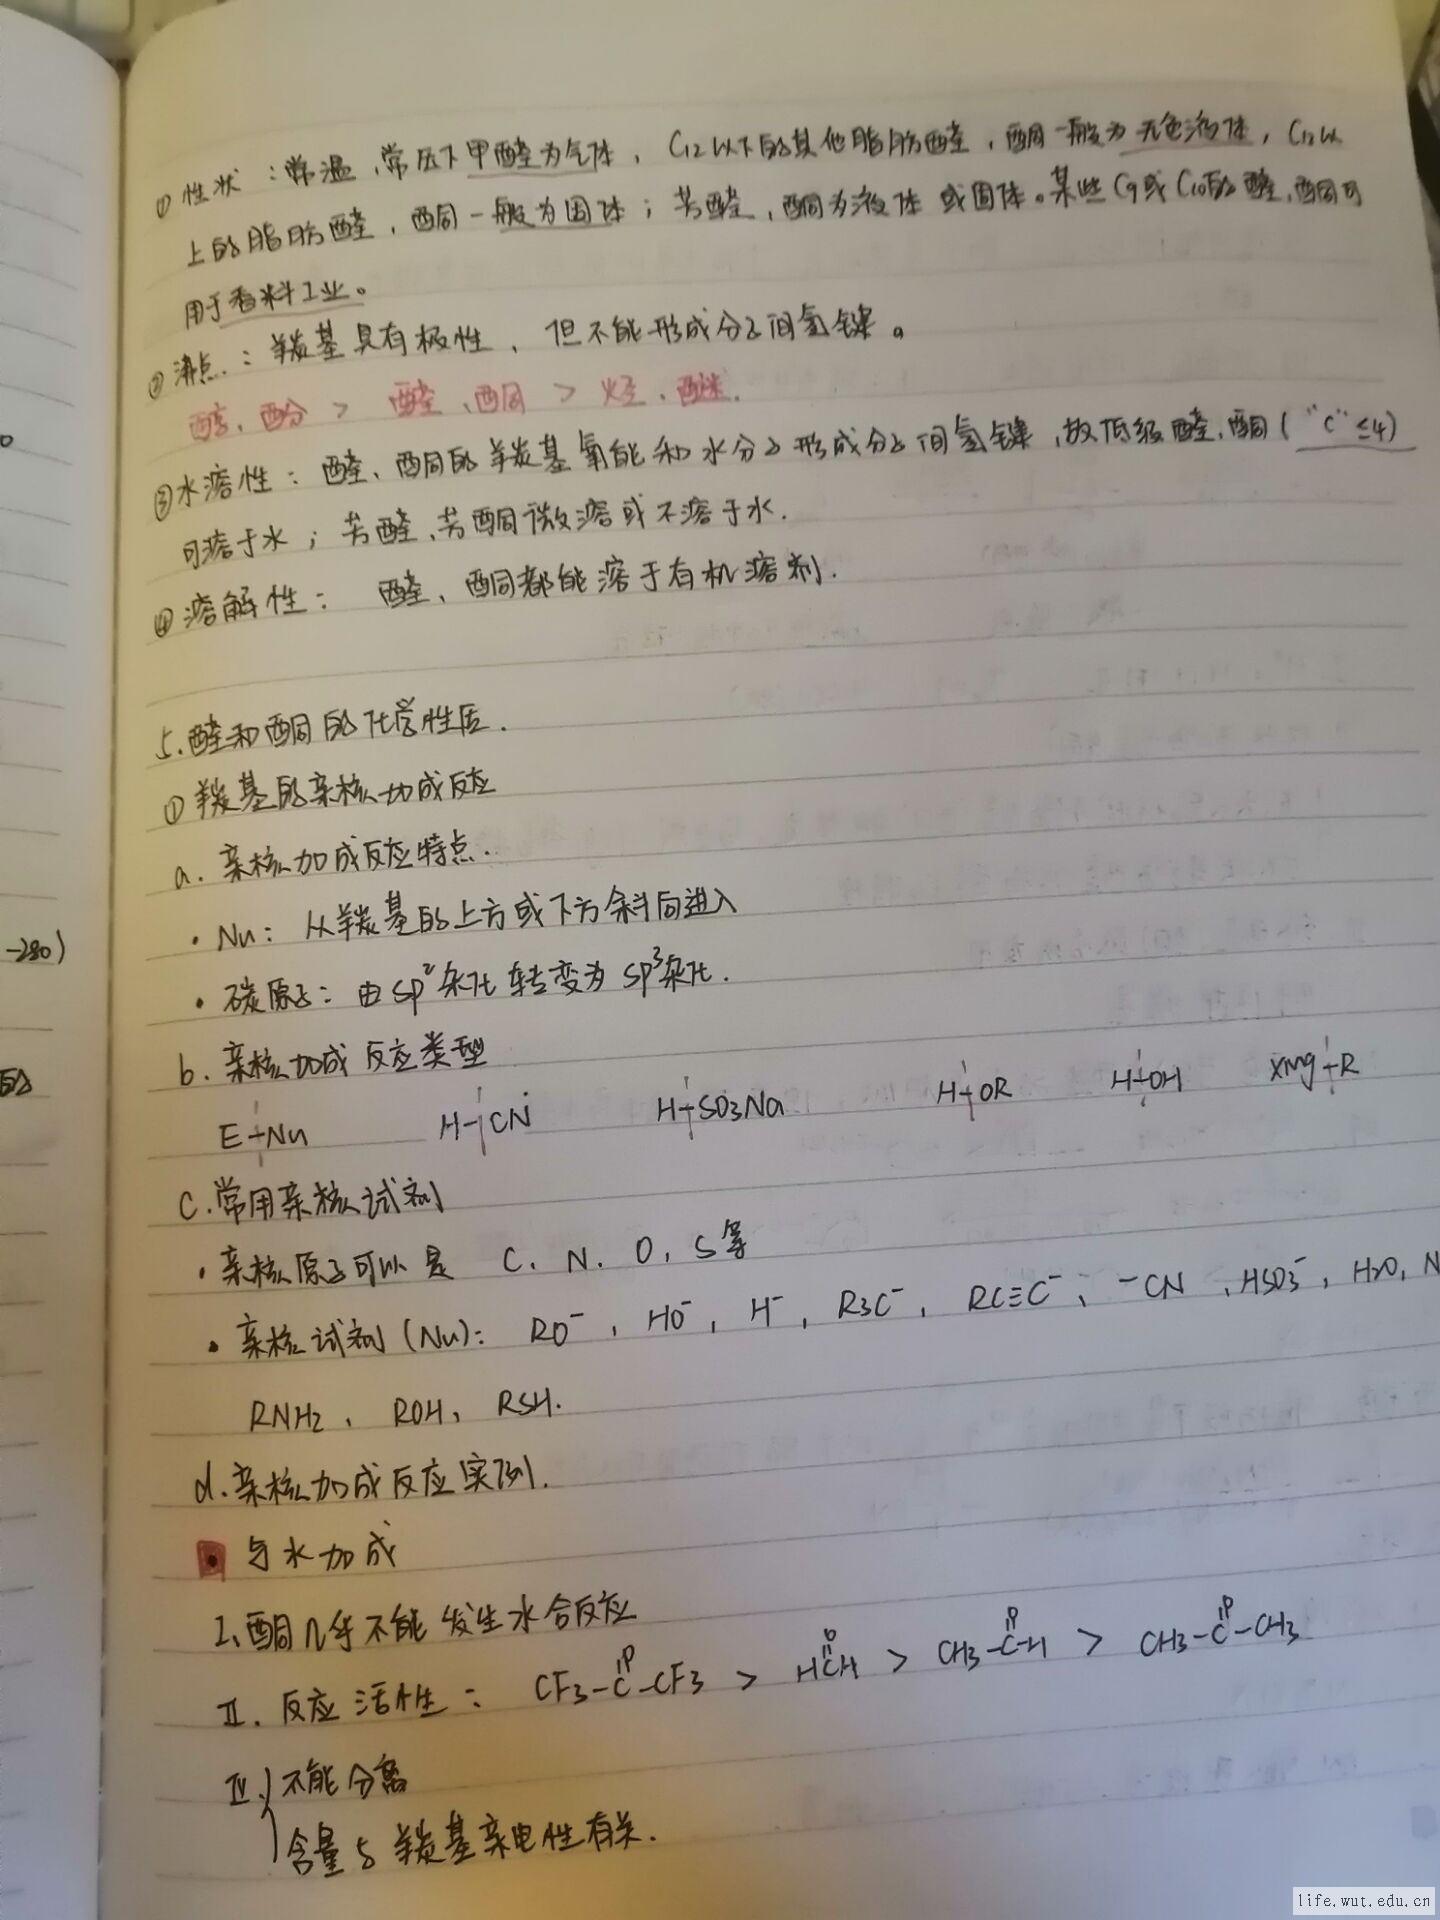 ①性状：常温，常压下甲醛为气体，C12以下的其他脂肪醛，酮一般为无色液体，C12以
上的脂肪醛，酮一般为固体；芳醛，酮为液体或固体。某些C9或C10的醛，酮可
用于香料工业。
②沸点：羰基具有极性，但不能形成分子间氢键。
醇、酚 > 醛、酮 > 烃、醚.
③水溶性：醛、酮的羰基氧能和水分子形成分子间氢键，故低级醛，酮（“C”≤4）
可溶于水；芳醛、芳酮微溶或不溶于水.
④溶解性： 醛、酮都能溶于有机溶剂.
5.醛和酮的化学性质.
①羰基的亲核加成反应
a. 亲核加成反应特点.
·Nu：从羰基的上方或下方斜向进入
·碳原子：由sp²杂化转变为sp³杂化.
b. 亲核加成反应类型
E-Nu H-CN H-SO3Na H-OR H-OH XMg-R
C.常用亲核试剂
·亲核原子可以是 C、N、O、S等
·亲核试剂(Nu)： RO⁻，HO⁻，H⁻，R3C⁻，RC≡C⁻、⁻CN，HSO3⁻，H2O，N
RNH2、ROH，RSH.
d.亲核加成反应实例.
与水加成
I、酮几乎不能发生水合反应
II. 反应活性： CF3-C(=O)-CF3 > HC(=O)H > CH3-C(=O)-H > CH3-C(=O)-CH3
不能分离
含量与羰基亲电性有关.
-280)
的
life.wut.edu.cn